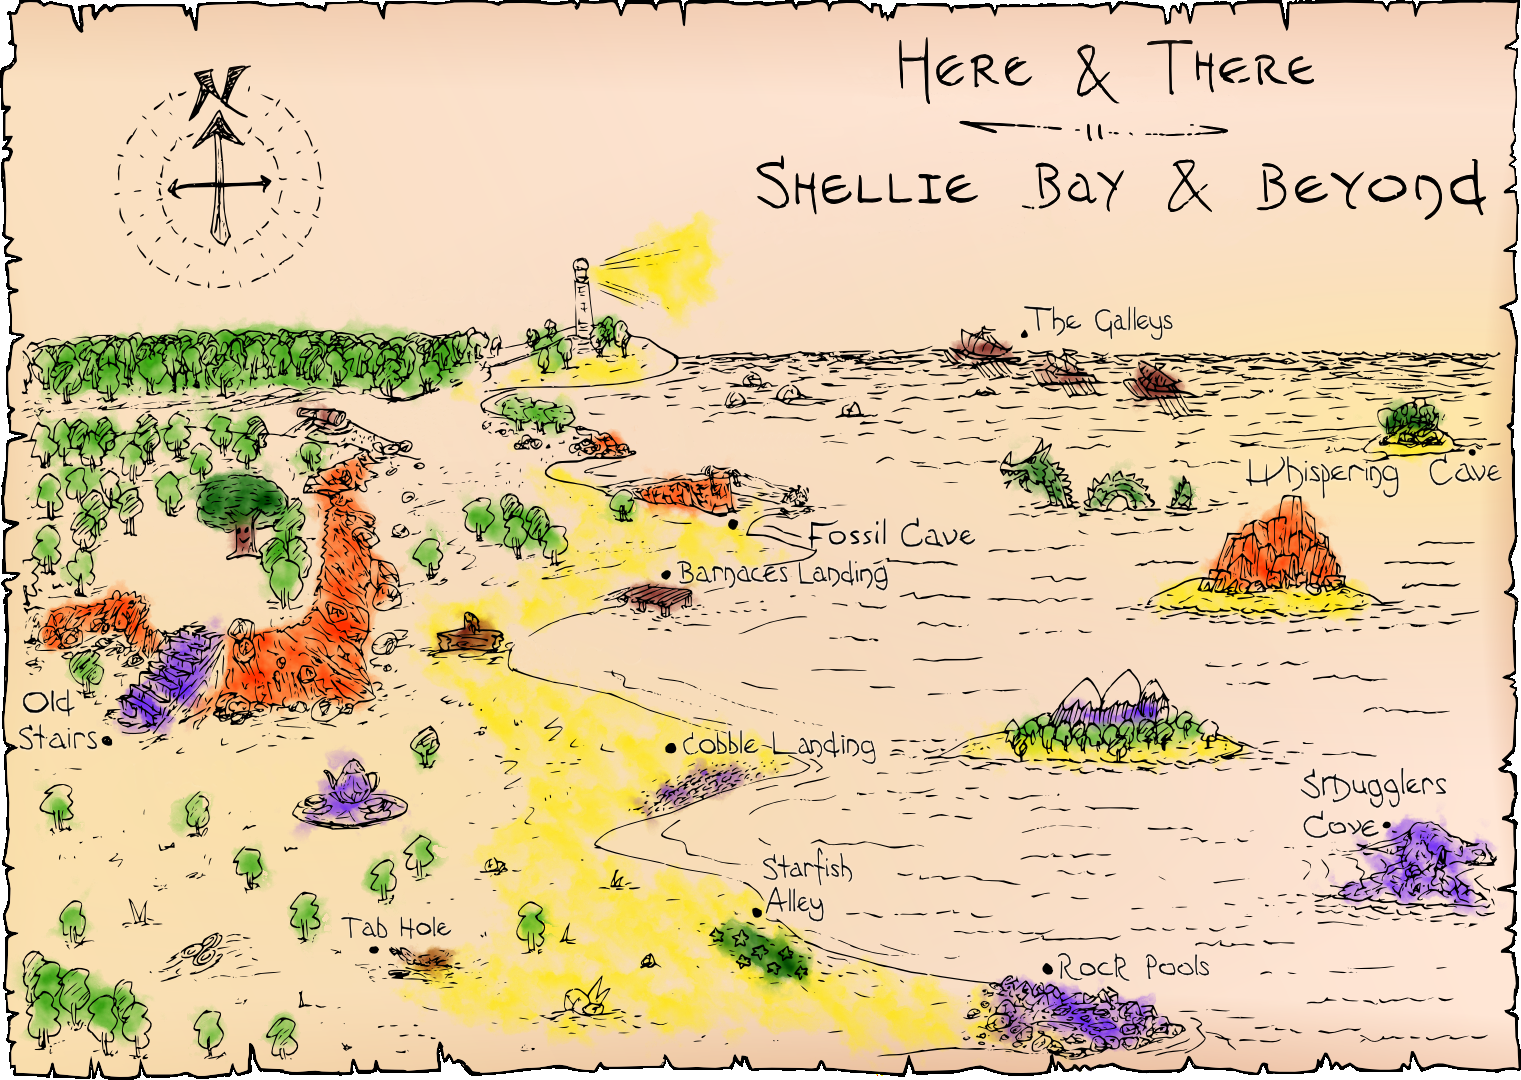 N
HERE & THERE
SHELLIE BAY & BEYOND
The Galleys
Whispering Cave
Fossil Cave
Barnaces Landing
Old
Stairs
Cobble Landing
Smugglers
Cove
Starfish
Alley
Tab Hole
Rock Pools